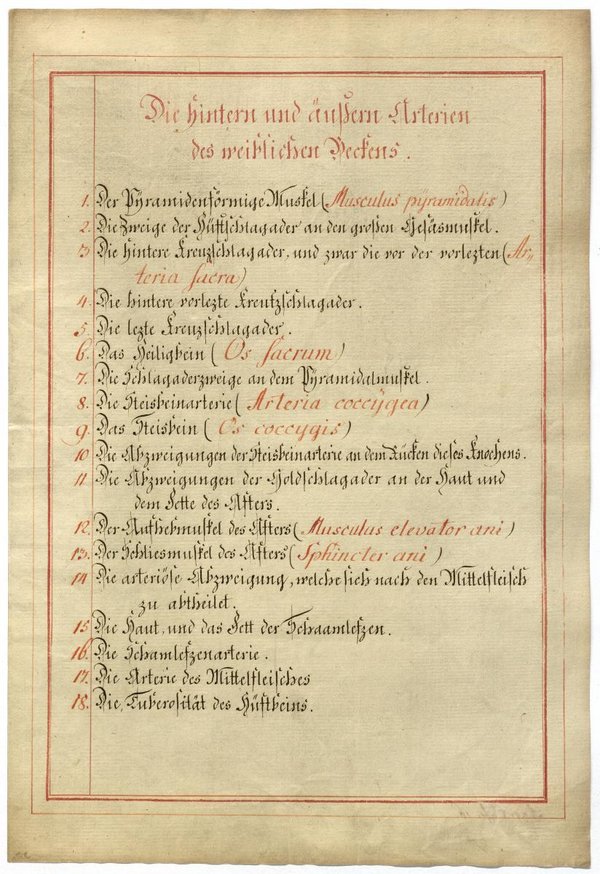 Die hintern und äußern Arterien
des weiblichen Beckens.
1. Der Pyramidenförmige Muskel (Musculus pÿramidalis)
2. Die Zweige der Hüftschlagader an den großen Gesäsmuskel.
3. Die hintere Kreuzschlagader, und zwar die vor der vorlezten (Ar-
teria sacra)
4. Die hintere vorlezte Kreutzschlagader.
5. Die lezte Kreuzschlagader.
6. Das Heiligbein (Os sacrum)
7. Die Schlagaderzweige an dem Pyramidalmuskel.
8. Die Steisbeinarterie (Arteria coccÿgea)
9. Das Steisbein (Os coccÿgis)
10. Die Abzweigungen der Steisbeinarterie an dem Rücken dieses Knochens.
11. Die Abzweigungen der Goldschlagader an der Haut und
dem Fette des Afters.
12. Der Aufhebmuskel des Afters (Musculus elevator ani)
13. Der Schliesmuskel des Afters (Sphincter ani)
14. Die arteriöse Abzweigung, welche sich nach den Mittelfleisch
zu abtheilet.
15. Die Haut, und das Fett der Schaamlefzen.
16. Die Schamlefzenarterie.
17. Die Arterie des Mittelfleisches
18. Die Tuberosität des Hüftbeins.